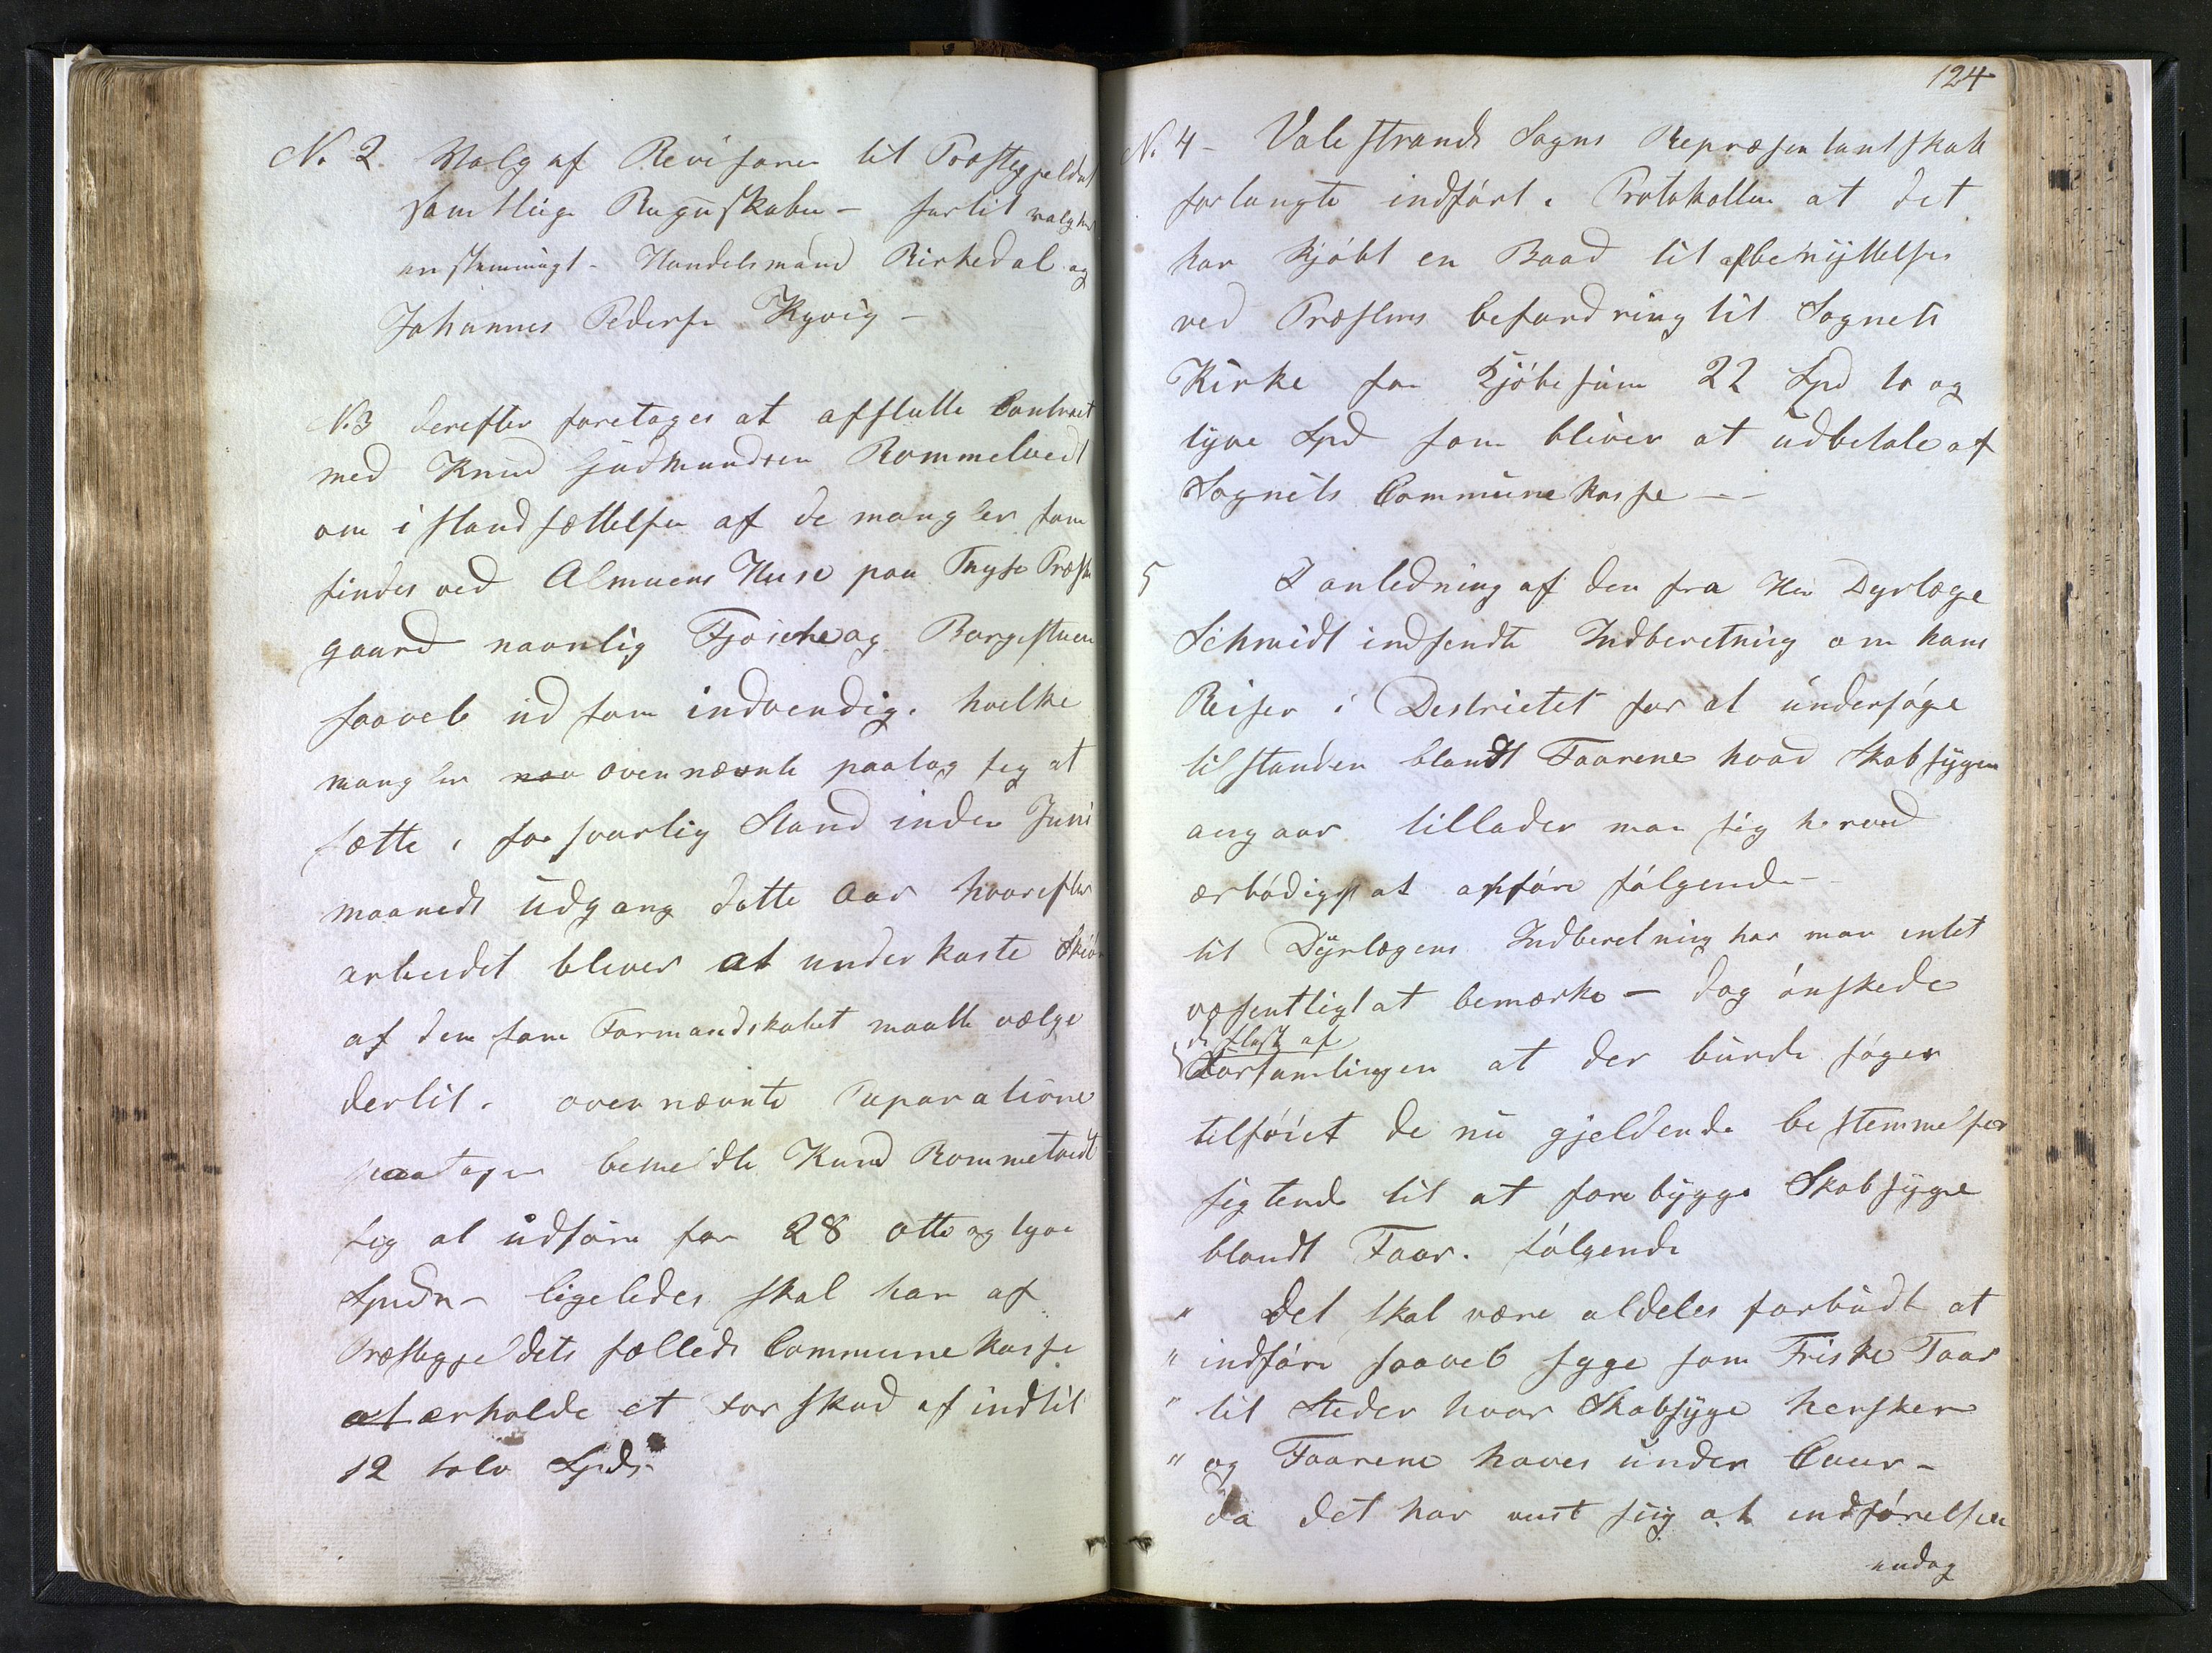 No 2. Valg af Revisorer til Præstegjeldets
samtlige Regnskaber – hertil valgtes
enstemmigt – Handelsmand Birkedal og
Johannes Pedersen Kyvig –
N.3 derefter foretoges at afslutte Contract
med Knud Gudmundsen Rommetvedt
om istandsættelsen af de mangler som
findes ved Almuens Huse paa Tysse Præste
gaard navnlig Fjøsene og Borgestuen
saavel ud som indvendig. hvilke
mangler ovennævnte paatog sig at
sætte i forsvarlig Stand inden Juni
maaneds Udgang dette Aar hvorefter
arbeidet bliver at underkaste Skiøn
af dem som Formandskabet maatte vælge
dertil. ovennævnte Reparatione
paatager bemeldte Knud Rommetvedt
sig at udføre for 28 otte og tyve
Spdr – ligeledes skal han af
Præstegjeldets fælleds Communekasse
at erholde et Forskud af indtil
12 tolv Spdr
124
No 4 – Valestrands Sogns Repræsentantskab
forlangte indført i Protokollen at det
har kjøbt en Baad til afbenyttelse
ved Præstens befordring til Sognets
Kirke for Kjøbesum 22 Spd to og
tyve Spd som bliver at udbetale af
Sognets Communekasse – –
5 I anledning af den fra Hr Dyrlæge
Schmidt indsendte Indberetning om hans
Reiser i Destrictet for at undersøge
tilstanden blandt Faarene hvad Skabsygen
angaar tillader man sig herved
ærbødigst at anføre følgende –
til Dyrlægens Indberetning har man intet
væsentligt at bemærke – dog ønskede
de fleste af
Forsamlingen at der burde søges
tilføiet de nu gjeldende bestemmelser
sigtende til at forebygge Skabsyge
blandt Faar. følgende
" Det skal være aldeles forbudt at
" indføre saavel syge som Friske Faar
" til Steder hvor Skabsyge hersker
" og Faarene haves under Cuur –
da det har viist sig at indførelsen
endog